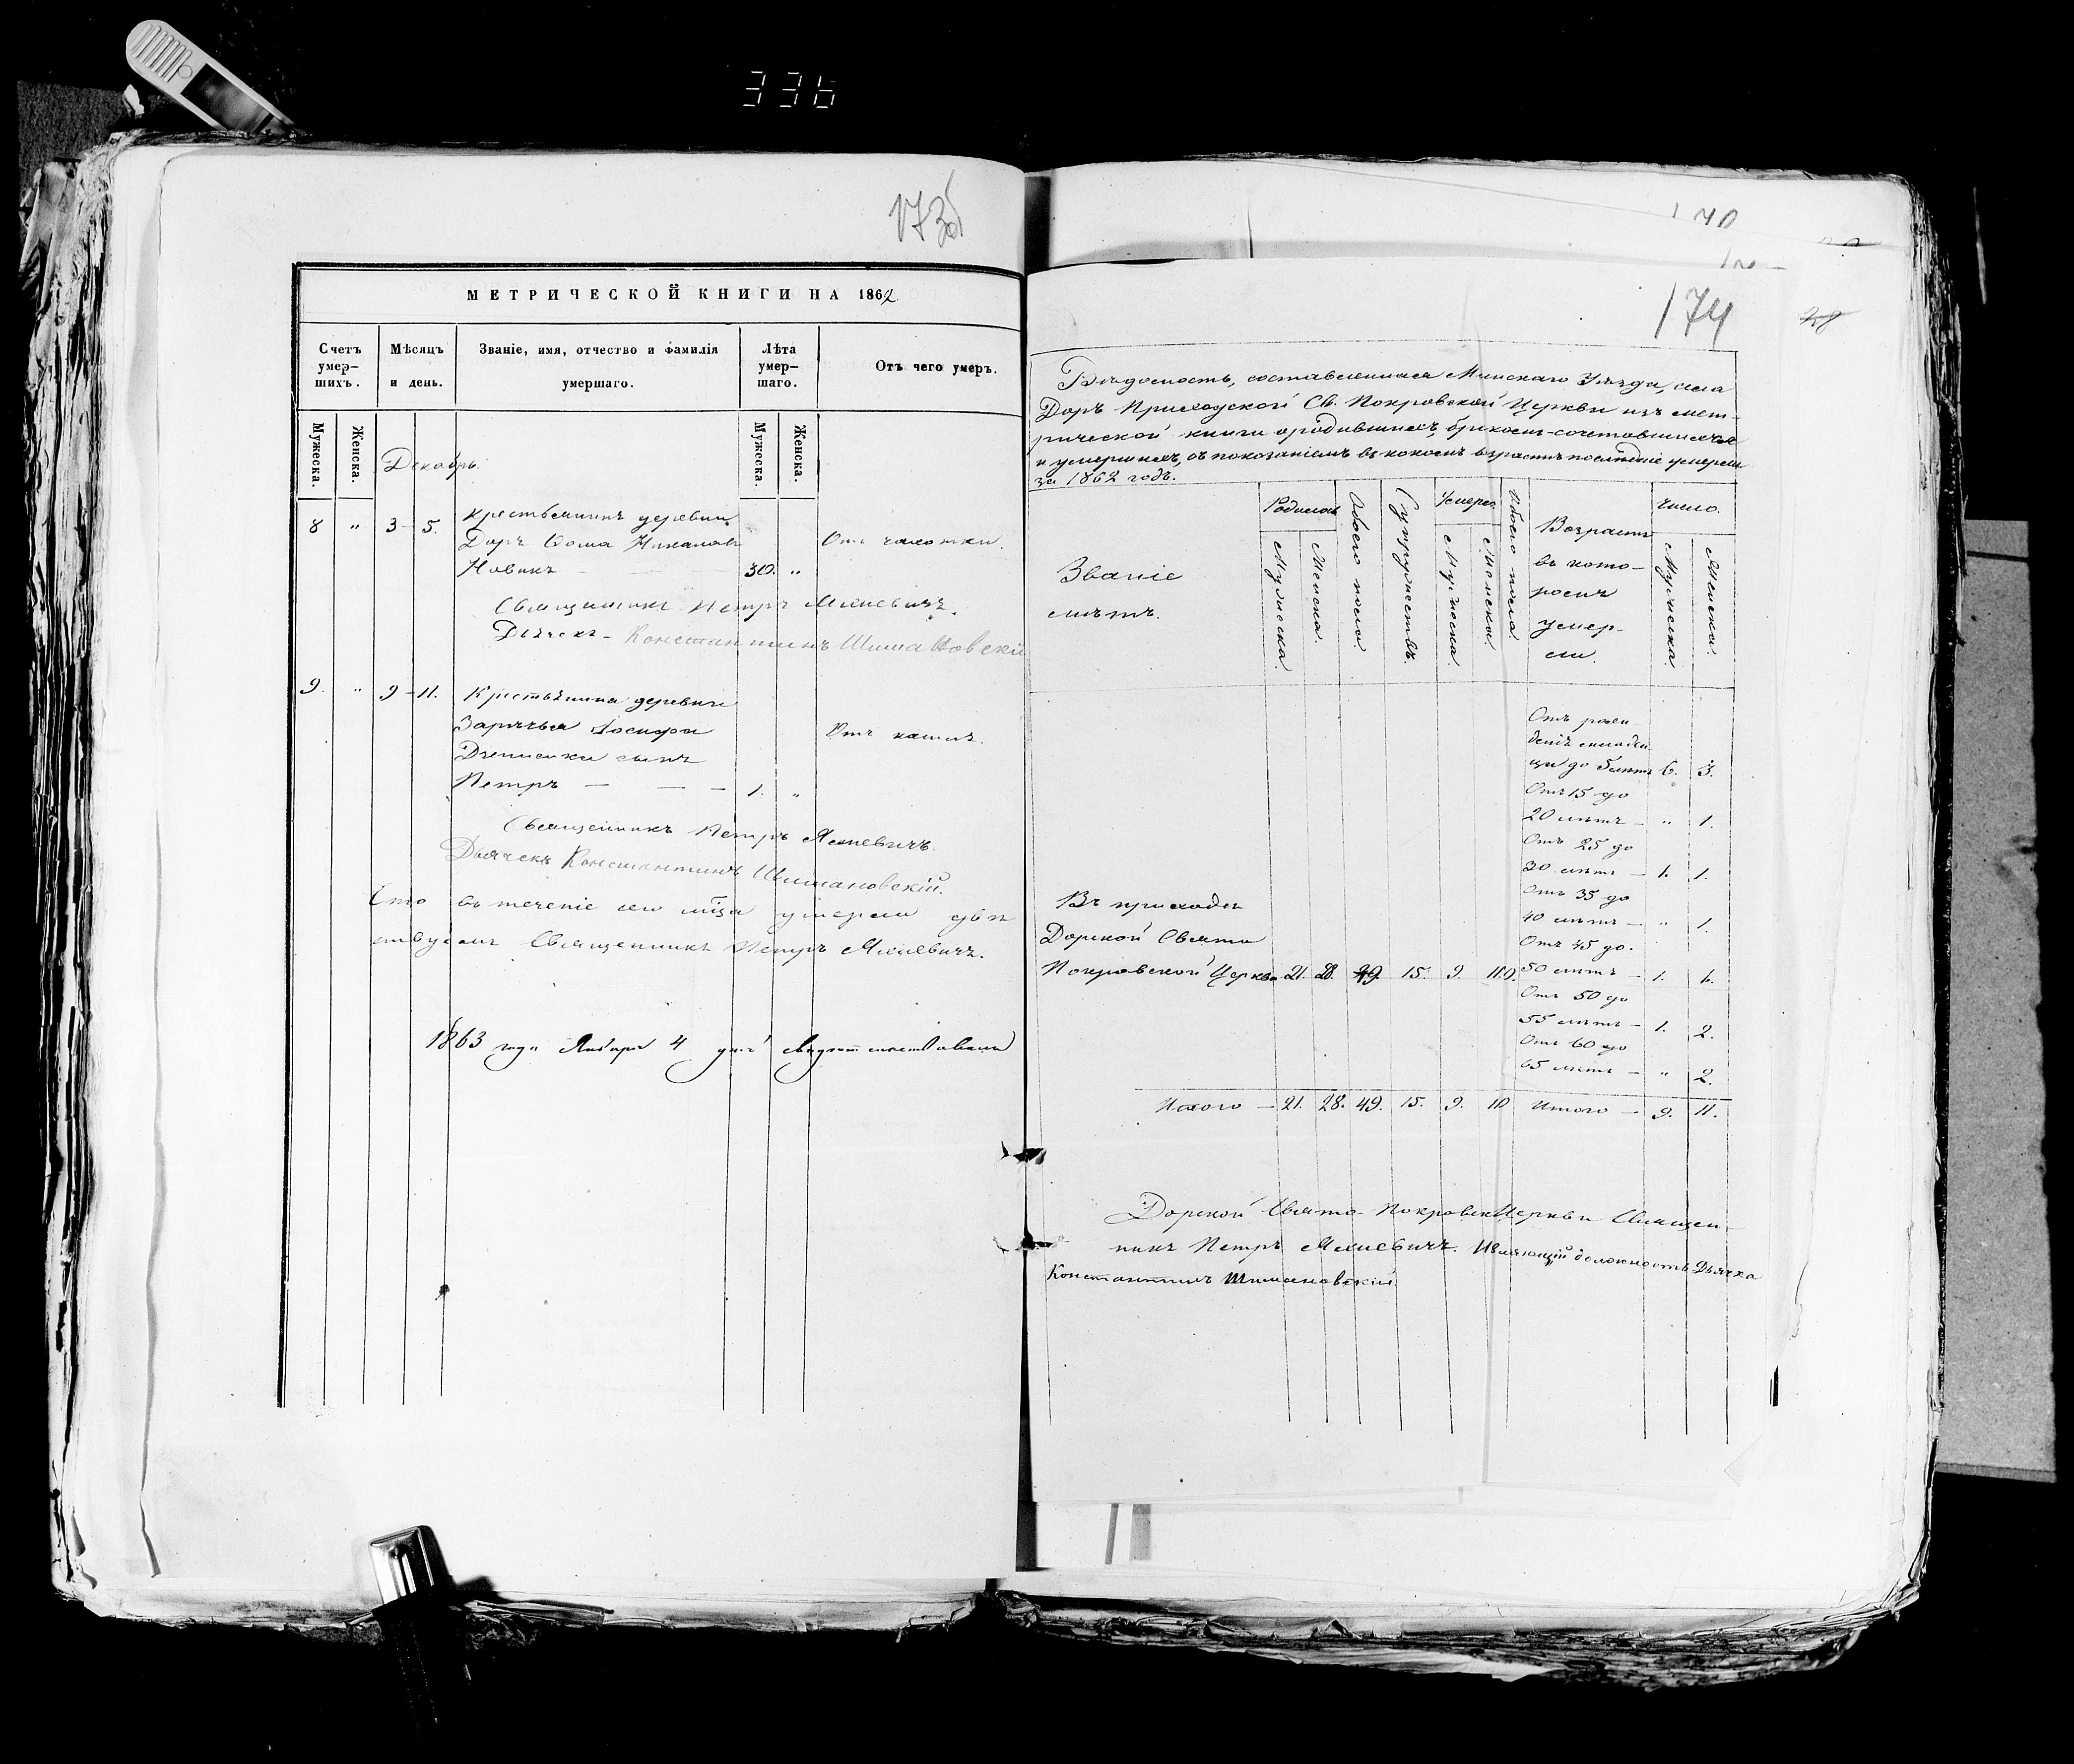 336
173об
МЕТРИЧЕСКОЙ КНИГИ НА 1862
Счетъ умер-
шихъ.
Мѣсяцъ
и день.
Званіе, имя, отчество и фамилія
умершаго.
Лѣта
умер-
шаго.
Отъ чего умеръ.
Мужеска.
Женска.
Декабрь.
Мужеска.
Женска.
8 " 3 - 5. Крестьянинъ деревни
Доръ Фома
Новикъ — 30. "
Отъ чахотки.
Священникъ Петръ
Дьячекъ - Константинъ Шимановскій
9. " 9 - 11. Крестьянина деревни
Зарѣчья
сынъ
Петръ — — — 1. "
Отъ кашля.
Священникъ Петръ
Дьячекъ Константинъ Шимановскій.
Что въ теченіе сего мѣсяца умерли двѣ
Священникъ Петръ
1863 года Января 4 дня
170
174
28
Вѣдомость, составленная Минскаго Уѣзда, села
Доръ Приходской Св. Покровской Церкви изъ мет-
рической книги о родившихся, бракомъ-сочетавшихся
и умершихъ, съ показаніемъ въ какомъ возрастѣ послѣдніе умерли
за 1862 годъ.
Званіе
мѣстъ.
Родилось
Мужеска.
Женска.
Обоего пола.
Супружествъ.
Умерло
Мужеска.
Женска.
Обоего пола
Возрастъ
въ кото-
ромъ
умер-
ли.
Число.
Мужеска.
Женска.
Отъ рож-
денія младен-
ца до 5 лѣтъ 6. 3.
Отъ 15 до
20 лѣтъ — " 1.
Отъ 25 до
30 лѣтъ — 1. 1.
Отъ 35 до
40 лѣтъ — " 1.
Отъ 45 до.
Въ приходѣ
Дорской Свято
Покровской Церкви 21. 28. 49. 15. 9. 50 лѣтъ — 1. 1.
Отъ 50 до
55 лѣтъ — 1. 2.
Отъ 60 до
65 лѣтъ — " 2.
Итого — 21. 28. 49. 15. 9. 10 Итого — 9. 11.
Дорской Свято-Покровск Церкви Священ-
никъ Петръ Исправляющій должность Дьячка
Константинъ Шимановскій.